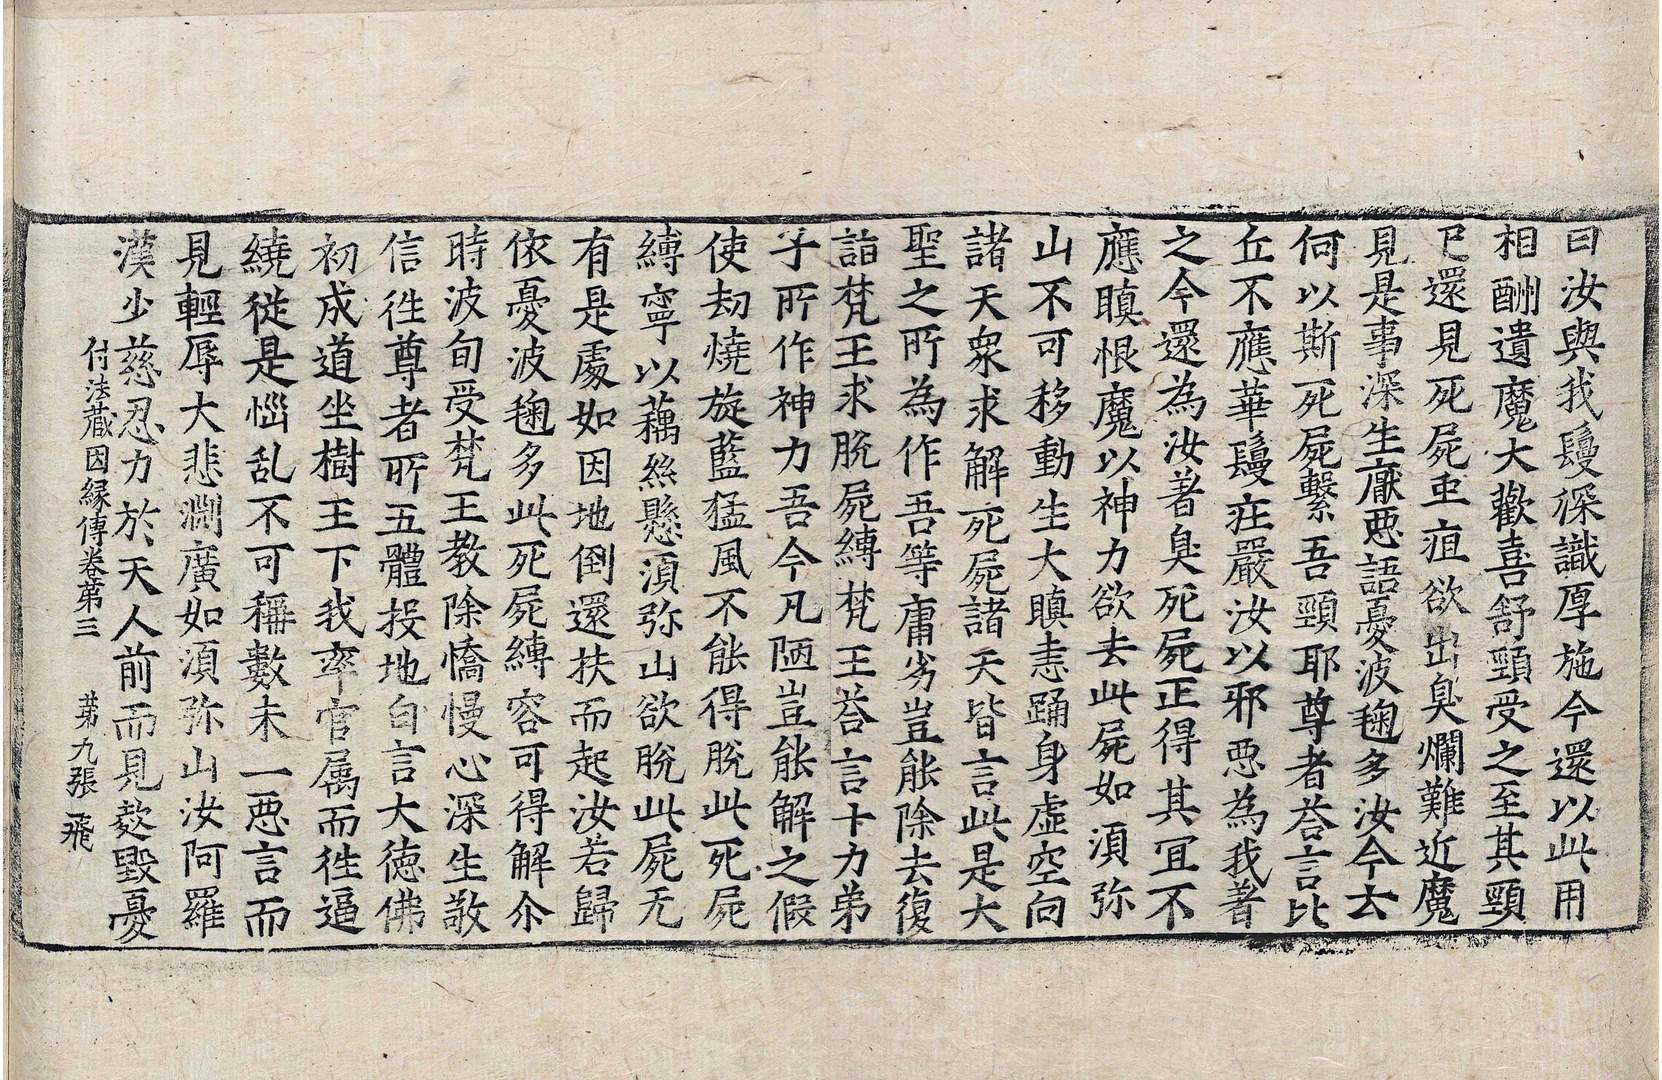 曰汝與我鬘深識厚施今還以此用
相酬遺魔大歡喜舒頸受之至其頸
已還見死屍虫疽欲出臭爛難近魔
見是事深生厭惡語憂波毱多汝今云
何以斯死屍繫吾頸耶尊者荅言比
丘不應華鬘庄嚴汝以邪惡為我著
之今還為汝著臭死屍正得其冝不
應瞋恨魔以神力欲去此屍如湏弥
山不可移動生大瞋恚踊身虛空向
諸天衆求解死屍諸天皆言此是大
聖之所為作吾等庸劣豈能除去復
詣梵王求脫屍縛梵王荅言十力弟
子所作神力吾今凡陋豈能解之假
使劫燒旋藍猛風不能得脫此死屍
縛寧以藕絲懸湏弥山欲脫此屍无
有是處如因地倒還扶而起汝若歸
依憂波毱多此死屍縛容可得解尒
時波旬受梵王教除憍慢心深生敬
信徃尊者所五體投地白言大德佛
初成道坐樹王下我率官属而徃逼
繞從是惱乱不可稱數未一惡言而
見輕辱大悲淵廣如湏弥山汝阿羅
漢少慈忍力於天人前而見欬毀憂
付法藏因緣傳卷第三　第九張　飛